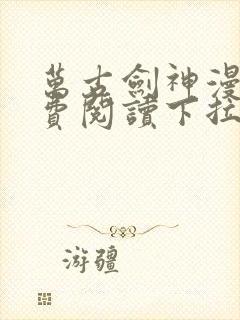 萬古劍神漫
費閱讀下拉
游疆